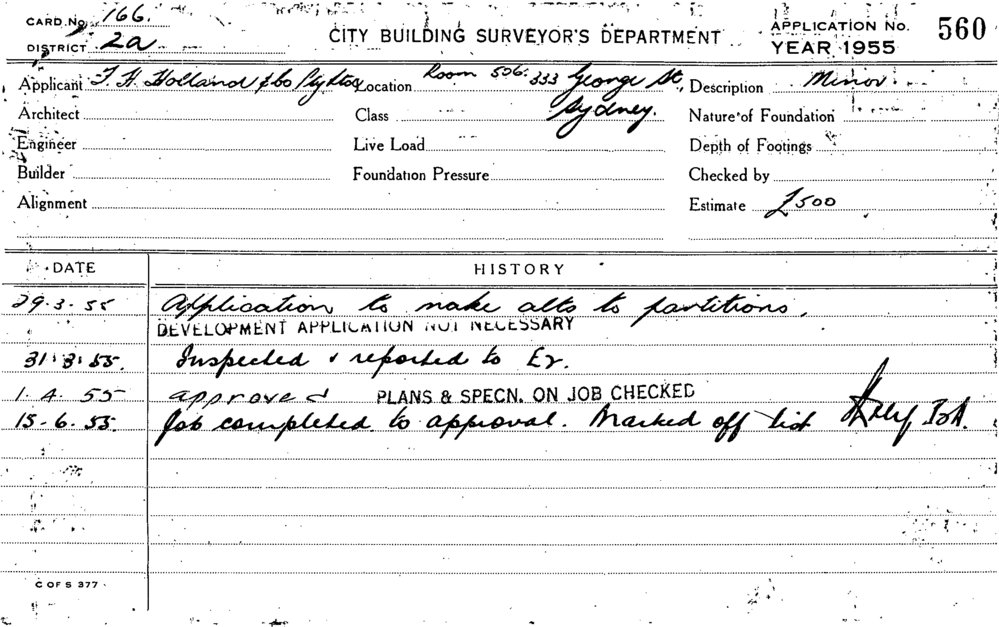 CARD. No. 166.
DISTRICT 2a
CITY BUILDING SURVEYOR'S DEPARTMENT
APPLICATION No. 560
YEAR 1955
Applicant T. H. Holland & Co Pty Ltd Location Room 506. 333 George St, Sydney. Description Minor
Architect Class Nature of Foundation
Engineer Live Load Depth of Footings
Builder Foundation Pressure Checked by
Alignment Estimate £500
DATE HISTORY
29.3.55 Application to make alts to partitions.
DEVELOPMENT APPLICATION NOT NECESSARY
31.3.55. Inspected & reported to
1.4.55 approved PLANS & SPECN. ON JOB CHECKED
15.6.55. Job completed to approval. Marked off list
C OF S 377